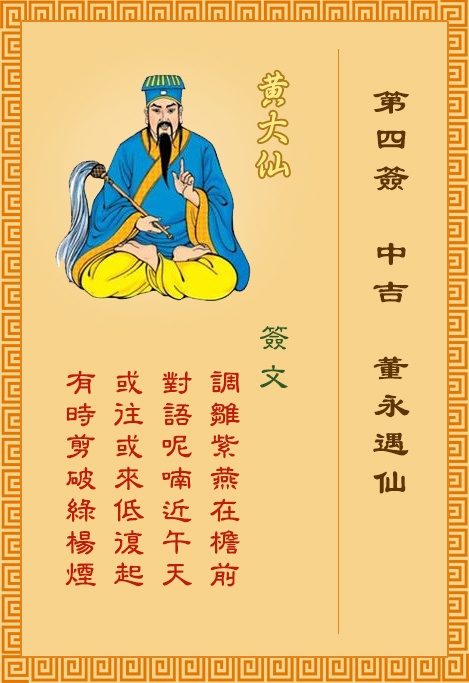 第四簽 中吉 董永遇仙
黃大仙
簽文
調雛紫燕在檐前
對語呢喃近午天
或往或來低復起
有時剪破綠楊煙